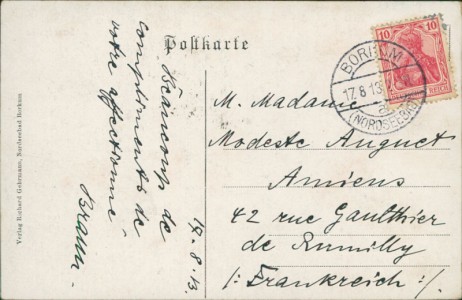 Postkarte
Beaucoup de
compliments de
votre affectionné
Braun.
17.8.13.
M. Madame
Modeste Auguet
Amiens
42 rue Gaulthier
de Rumilly
/: Frankreich :/
BORKUM
17.8.13
(NORDSEEBAD)
10 10
DEUTSCHES REICH
Verlag Richard Gehrmann, Nordseebad Borkum